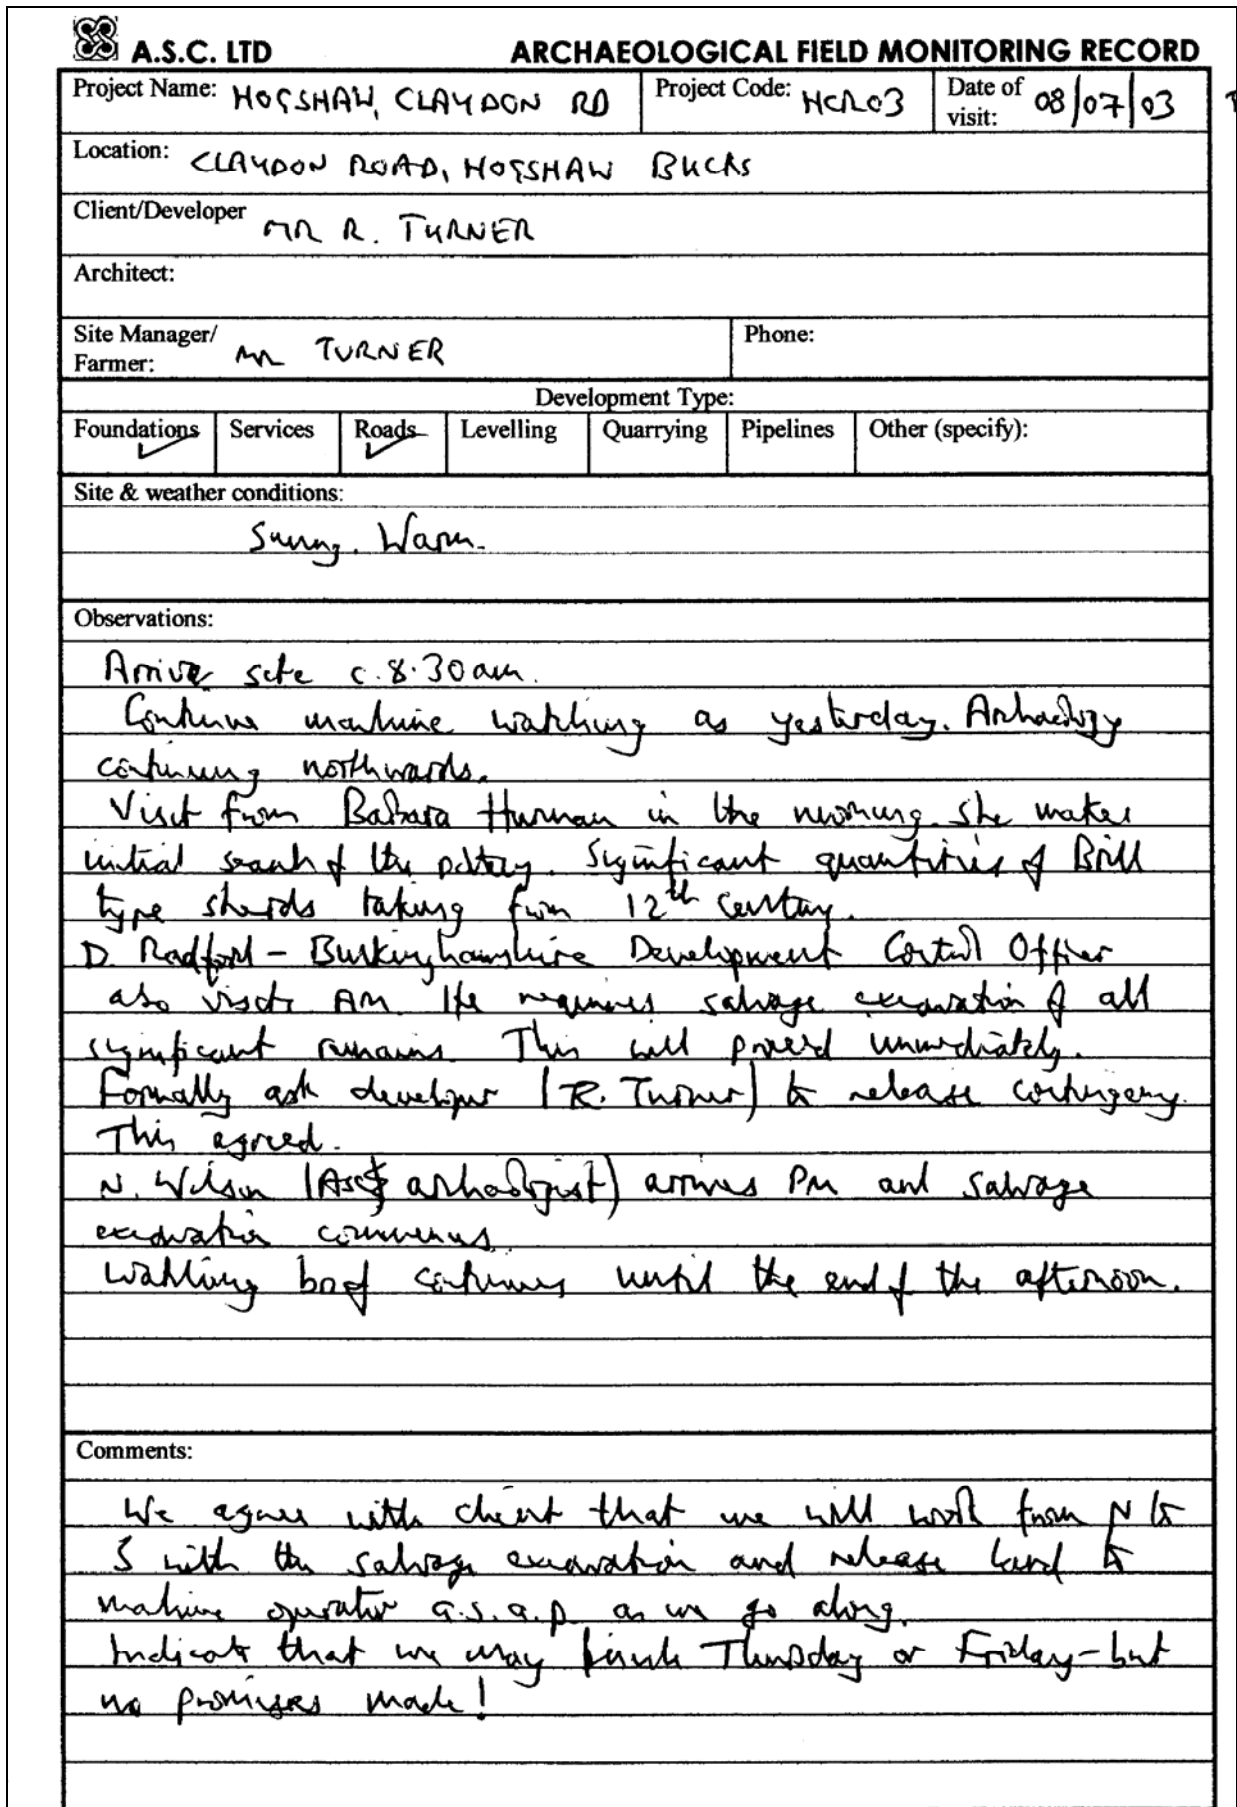 A.S.C. LTD ARCHAEOLOGICAL FIELD MONITORING RECORD
Project Name: HOGSHAW, CLAYDON RD Project Code: HCR03 Date of visit: 08/07/03
Location: CLAYDON ROAD, HOGSHAW BUCKS
Client/Developer MR R. TURNER
Architect:
Site Manager/ Farmer: MR TURNER Phone:
Development Type:
Foundations Services Roads Levelling Quarrying Pipelines Other (specify):
Site & weather conditions:
Sunny. Warm.
Observations:
Arrive site c. 8.30am.
Continue machine watching as yesterday. Archaeology
continuing northwards.
Visit from Barbara Hurman in the morning. She makes
initial search of the pottery. Significant quantities of Brill
type sherds taking from 12th century.
D. Radford - Buckinghamshire Development Control Officer
also visits AM. He requires salvage excavation of all
significant remains. This will proceed immediately.
Formally ask developer (R. Turner) to release contingency.
This agreed.
N. Wilson (ASC archaeologist) arrives PM and salvage
excavation commences.
Watching brief continues until the end of the afternoon.
Comments:
We agree with client that we will work from N to
S with the salvage excavation and release land to
machine operator a.s.a.p. as we go along.
Indicate that we may finish Thursday or Friday - but
no promises made!